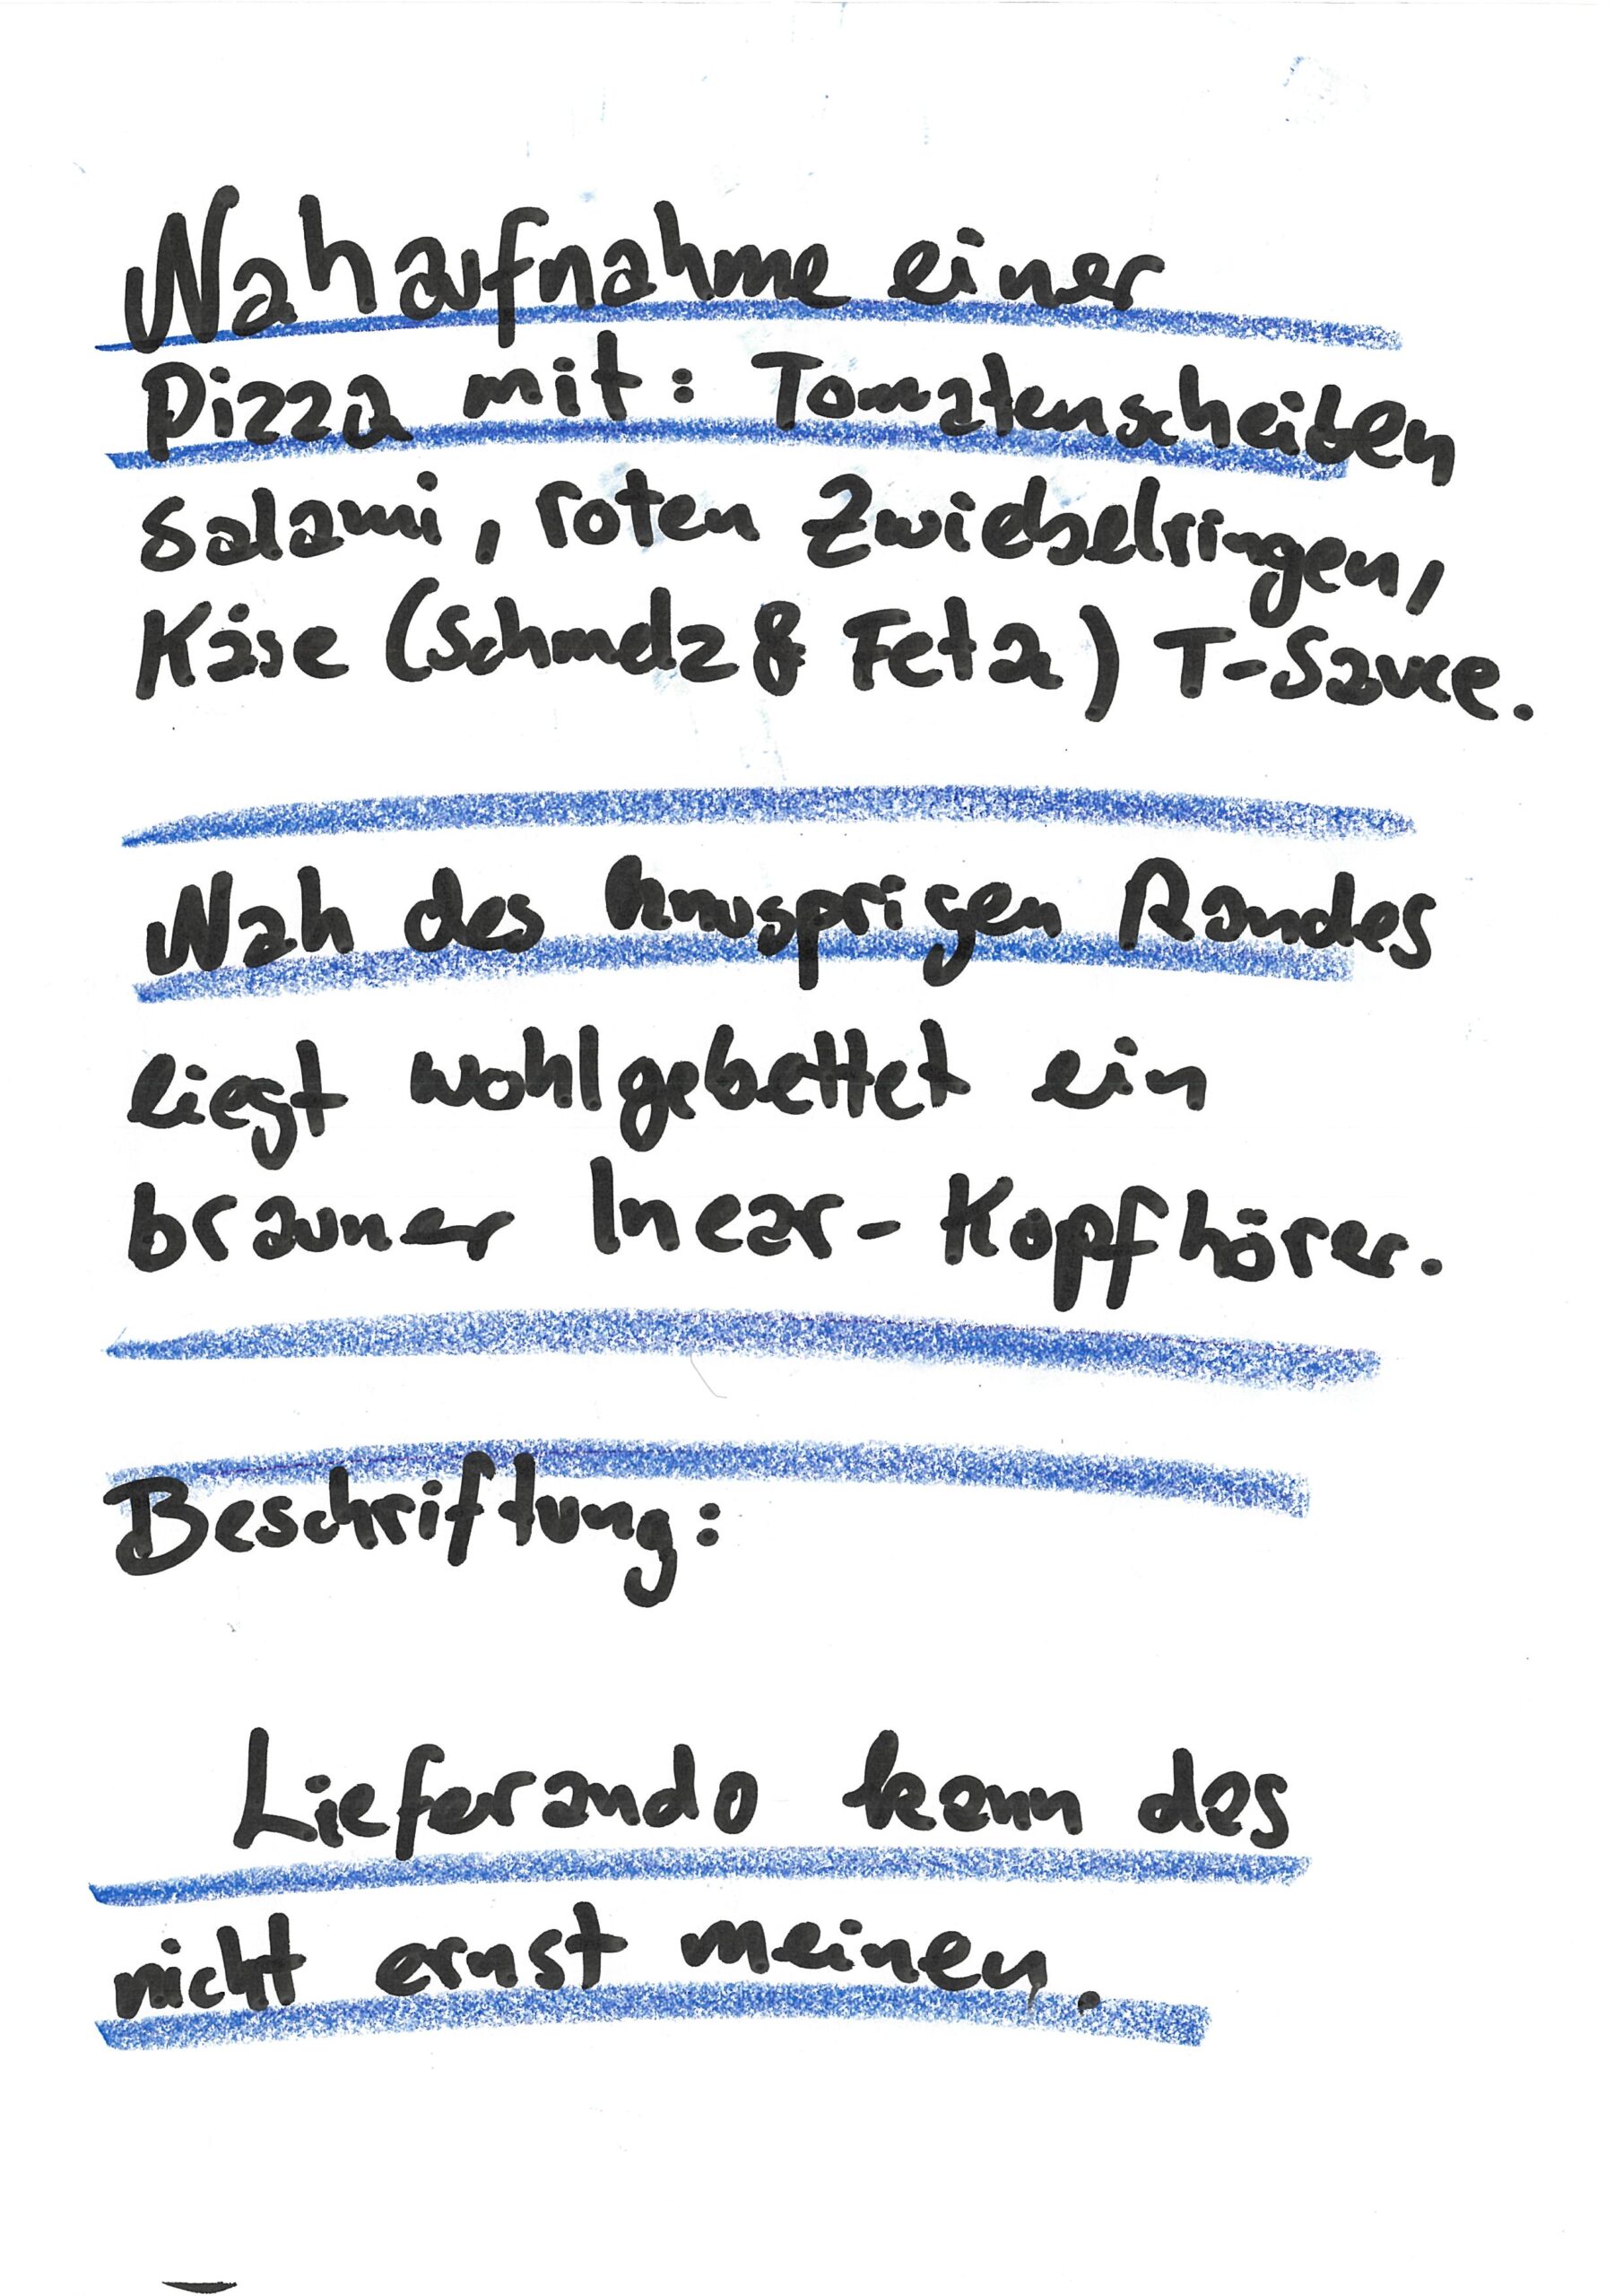 Nahaufnahme einer
Pizza mit: Tomatenscheiben
Salami, roten Zwiebelringen,
Käse (Schmelz & Feta) T-Sauce.
Nah des knusprigen Randes
liegt wohlgebettet ein
brauner Inear-Kopfhörer.
Beschriftung:
Lieferando kann das
nicht ernst meinen.